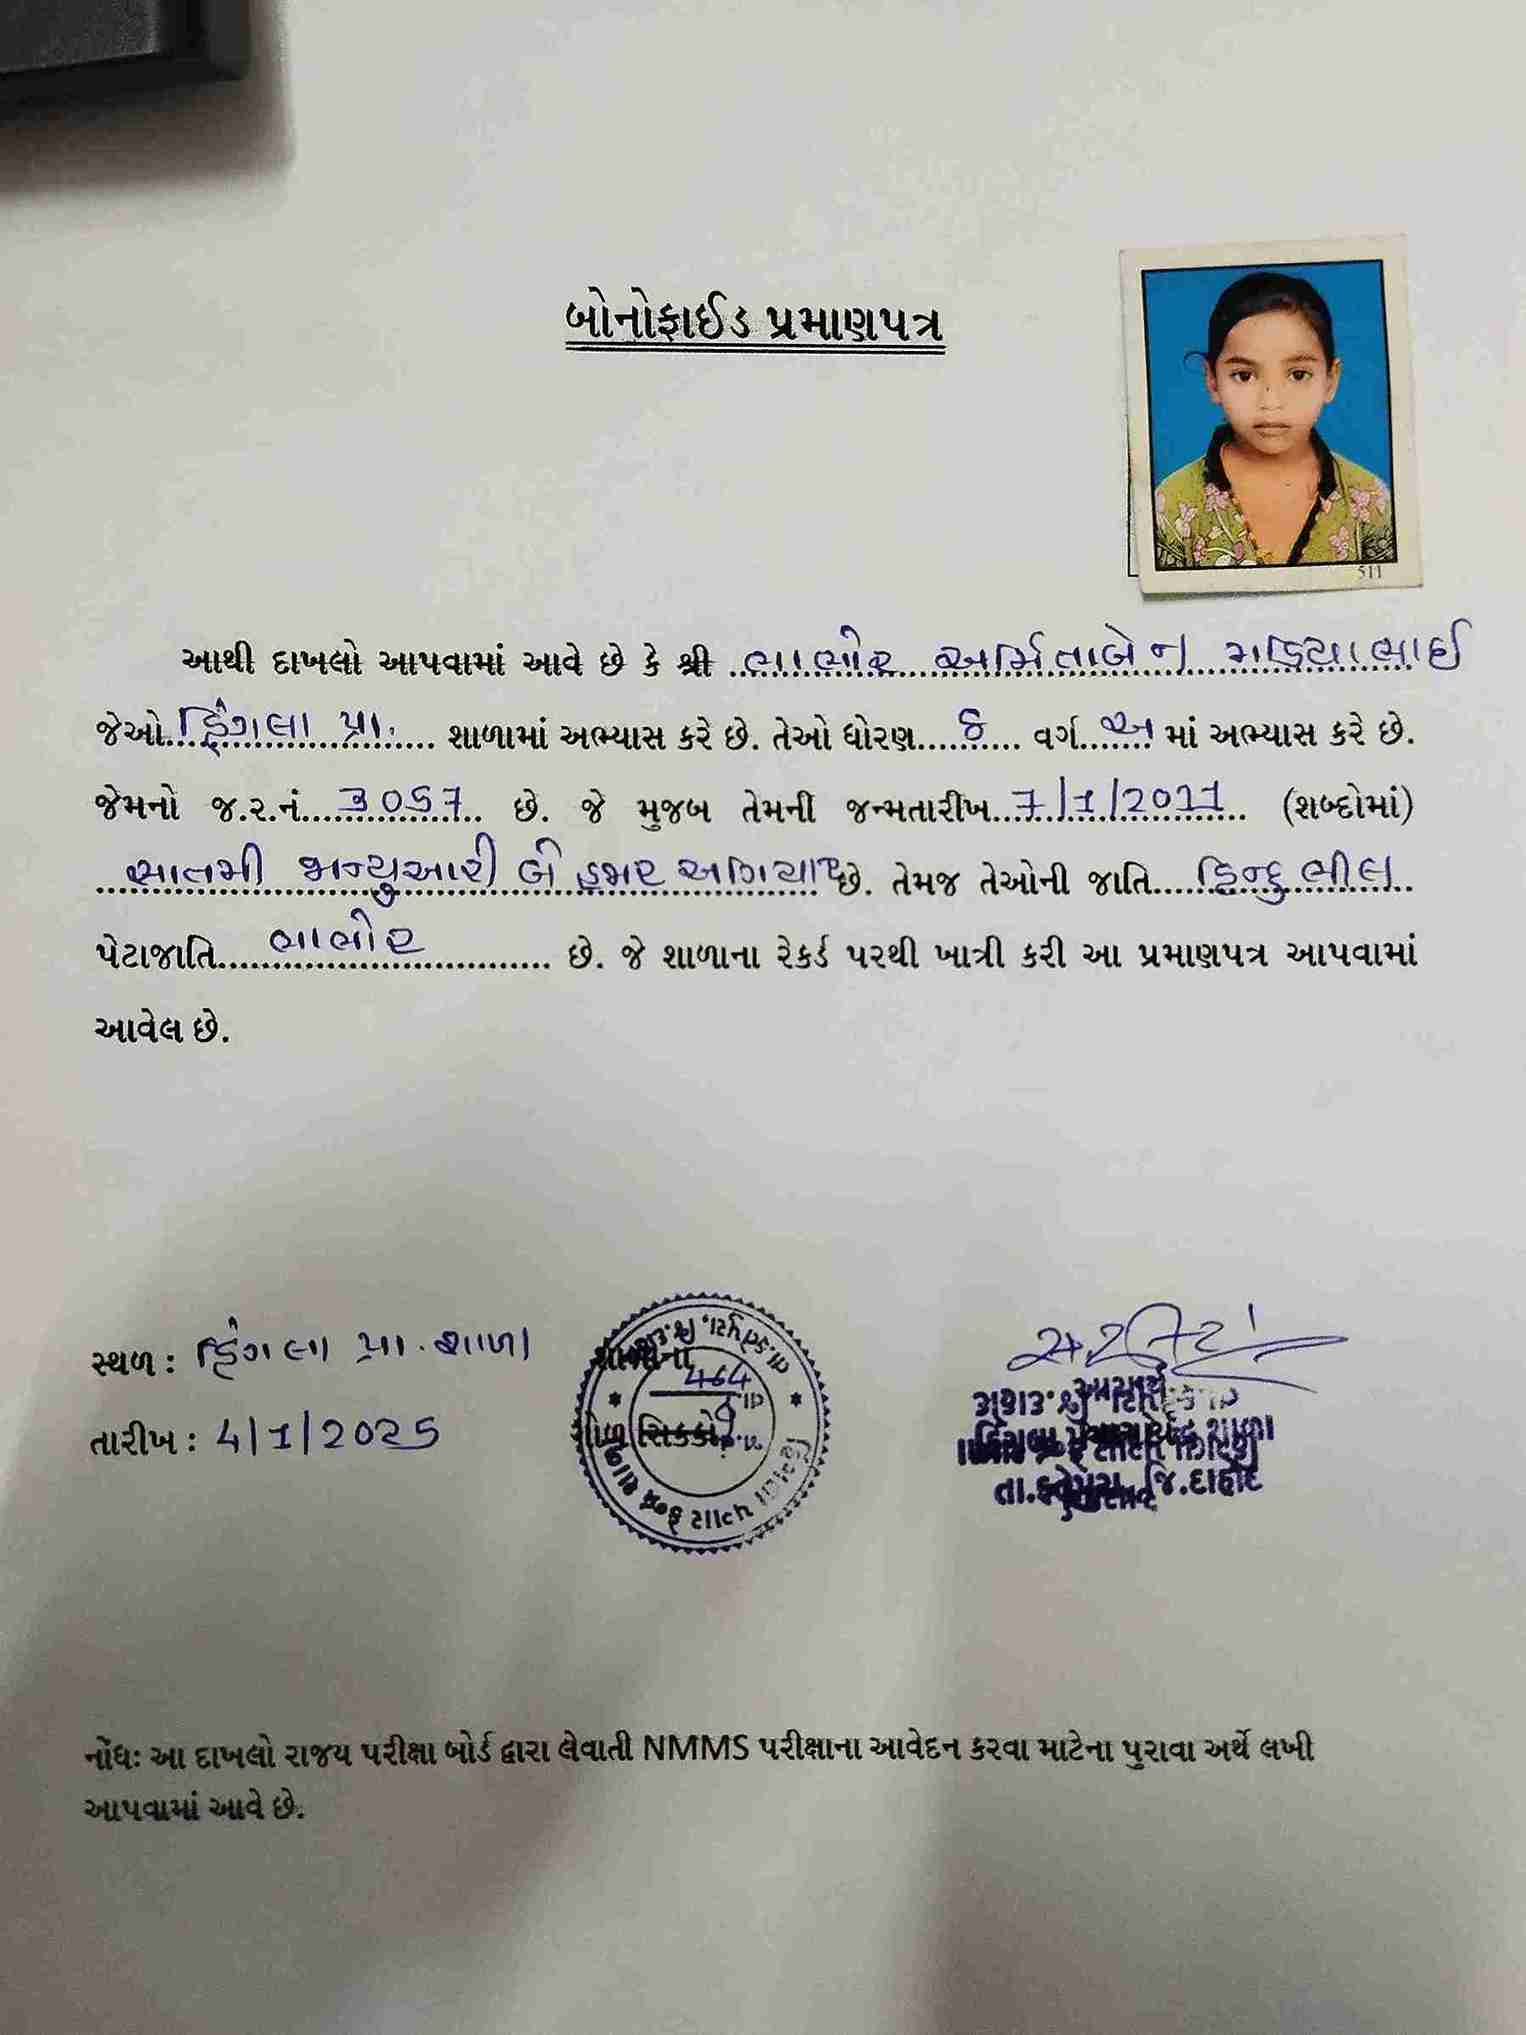 બોનોફાઈડ પ્રમાણપત્ર
511
આથી દાખલો આપવામાં આવે છે કે શ્રી ભાભોર અર્મિતાબેન મડિયાભાઈ
જેઓ હિંગલા પ્રા. શાળામાં અભ્યાસ કરે છે. તેઓ ધોરણ 8 વર્ગ અ માં અભ્યાસ કરે છે.
જેમનો જ.ર.નં. 3057 છે. જે મુજબ તેમની જન્મતારીખ 7/1/2011 (શબ્દોમાં)
સાતમી જાન્યુઆરી બે હજાર અગિયાર છે. તેમજ તેઓની જાતિ હિન્દુ ભીલ
પેટાજાતિ ભાભોર છે. જે શાળાના રેકર્ડ પરથી ખાત્રી કરી આ પ્રમાણપત્ર આપવામાં
આવેલ છે.
સ્થળ : હિંગલા પ્રા. શાળા
તારીખ : 4/1/2025
શાળાના
464
ગોળ સિક્કો
આચાર્ય
હિંગલા શાળા
તા.ફતેપુરા જિ.દાહોદ
નોંધઃ આ દાખલો રાજય પરીક્ષા બોર્ડ દ્વારા લેવાતી NMMS પરીક્ષાના આવેદન કરવા માટેના પુરાવા અર્થે લખી
આપવામાં આવે છે.